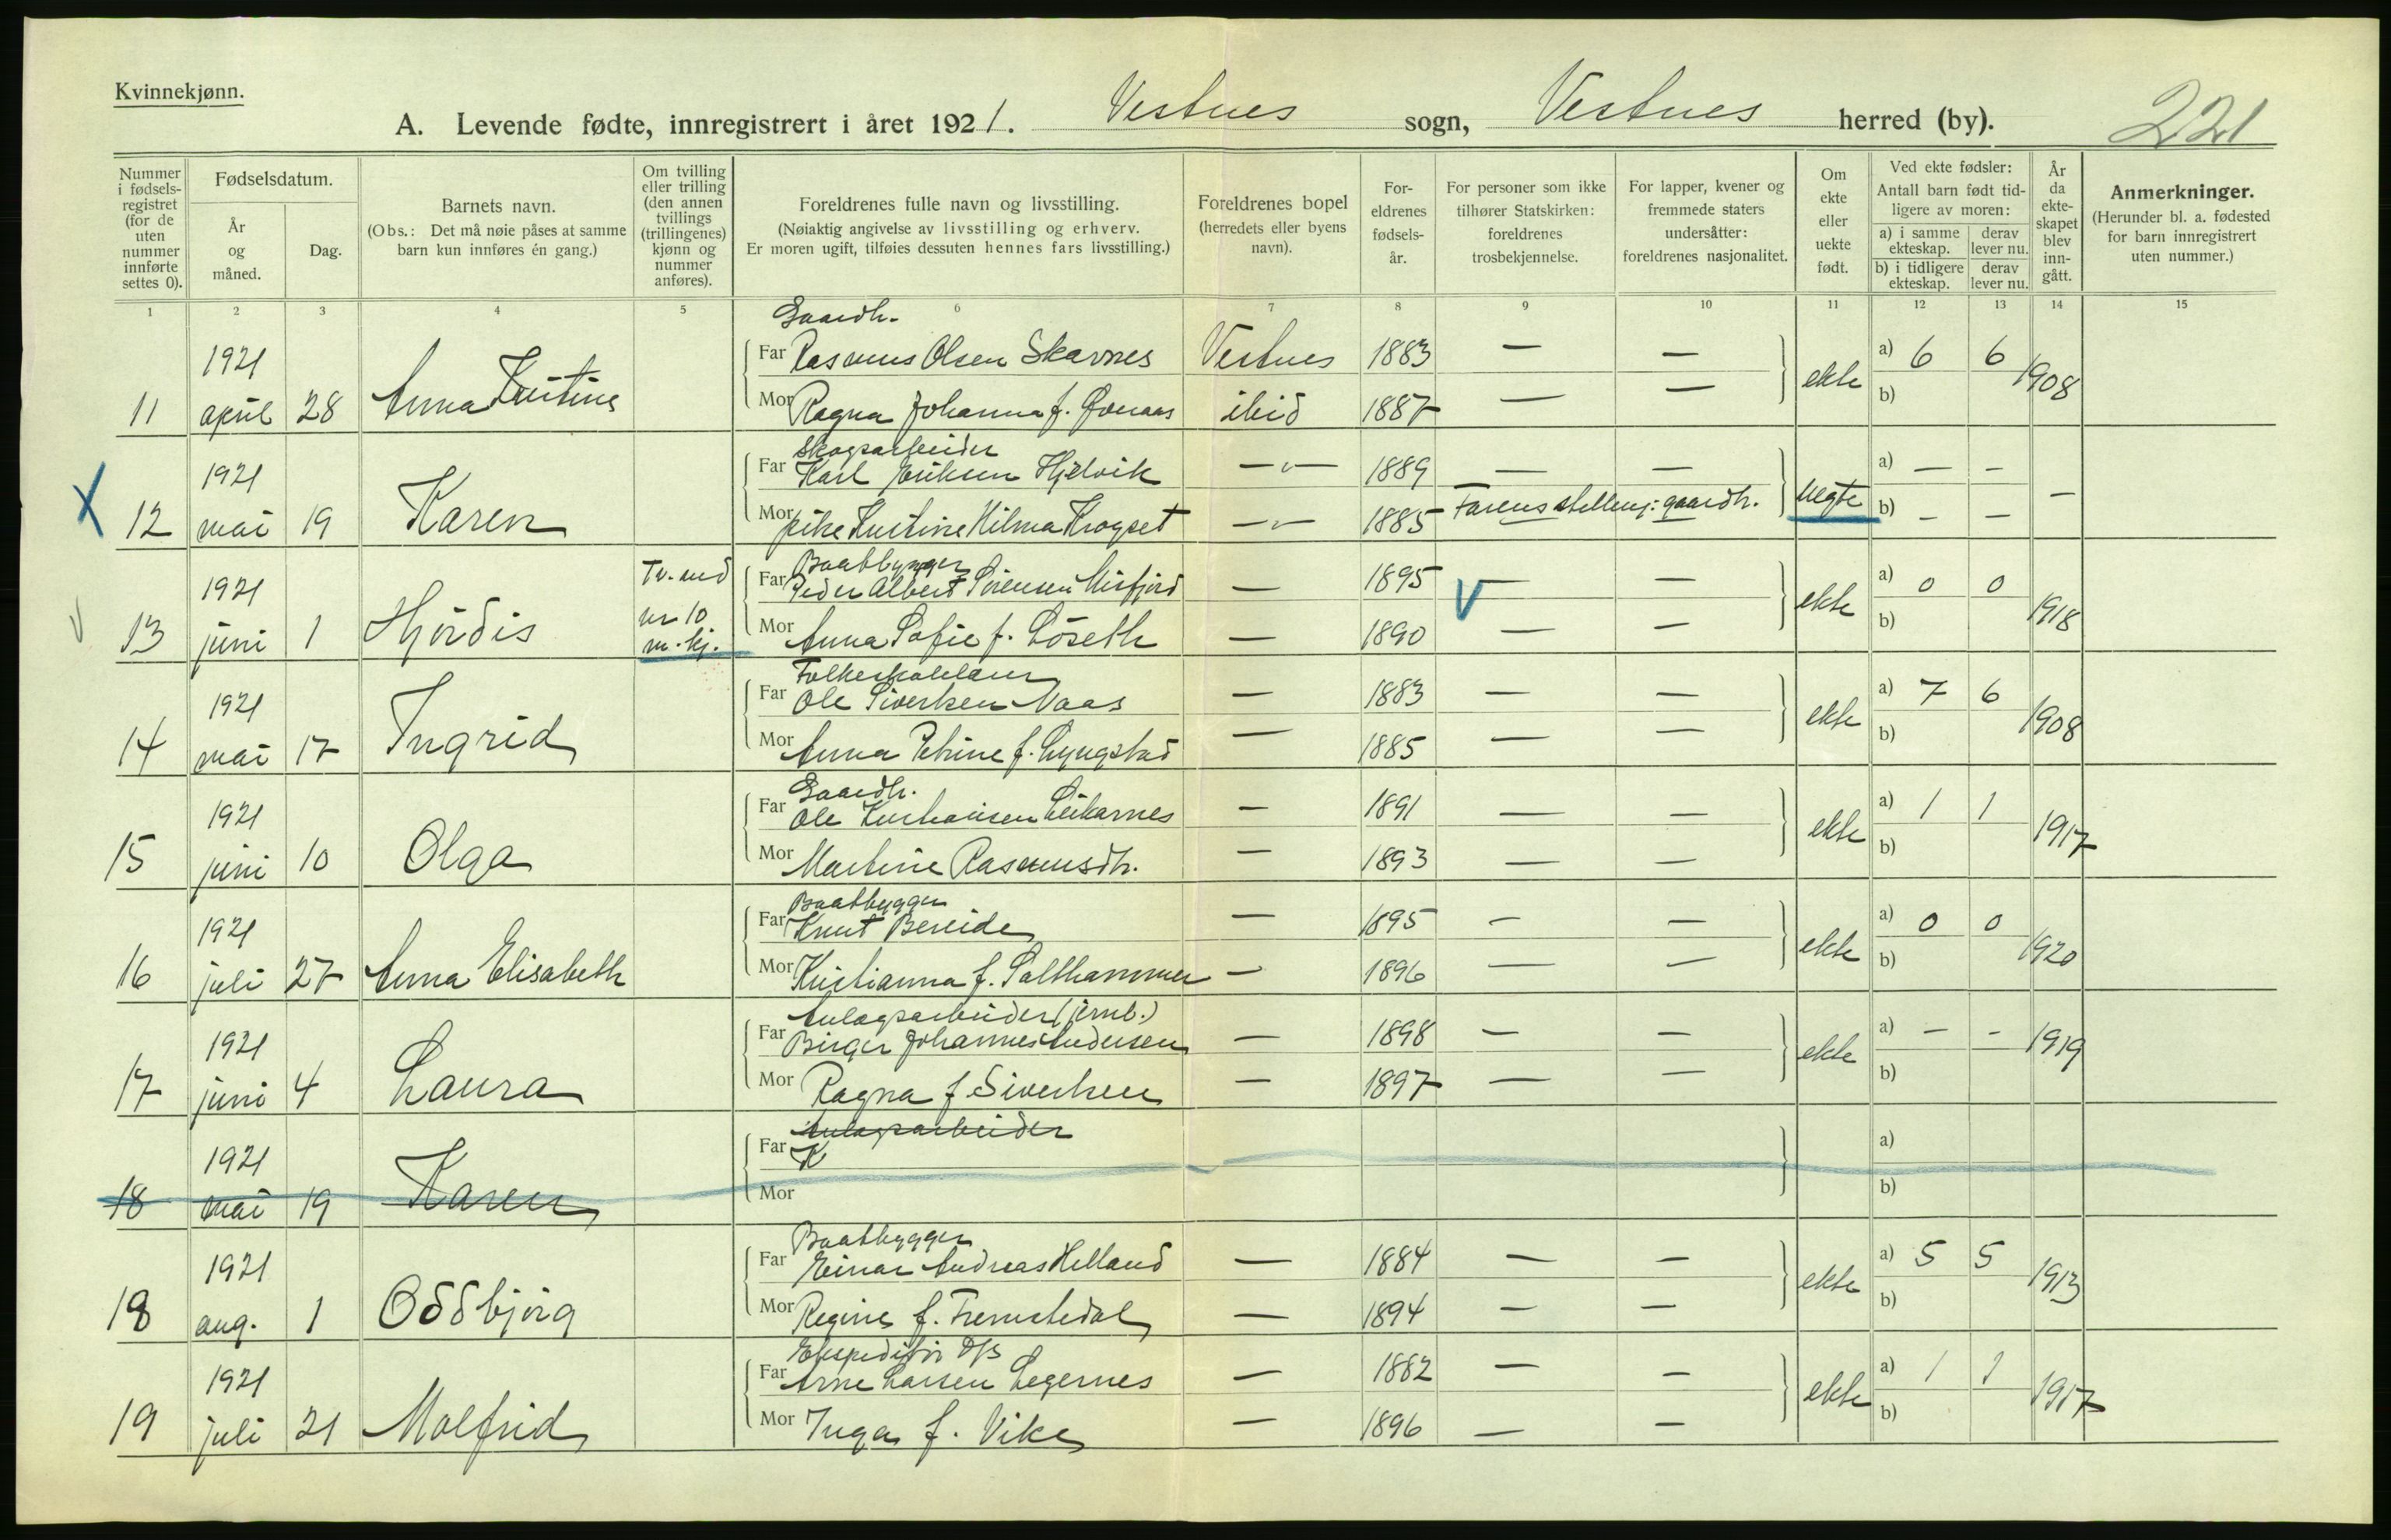 Kvinnekjønn.
A. Levende fødte, innregistrert i året 1921. Vestnes sogn, Vestnes herred (by). 221
Nummer i fødsels-registret (for de uten nummer innførte settes 0).
Fødselsdatum.
År og måned.
Dag.
Barnets navn.
(Obs.: Det må nøie påses at samme barn kun innføres én gang.)
Om tvilling eller trilling (den annen tvillings (trillingenes) kjønn og nummer anføres).
Foreldrenes fulle navn og livsstilling.
(Nøiaktig angivelse av livsstilling og erhverv.
Er moren ugift, tilføies dessuten hennes fars livsstilling.)
Foreldrenes bopel (herredets eller byens navn).
For-eldrenes fødsels-år.
For personer som ikke tilhører Statskirken: foreldrenes trosbekjennelse.
For lapper, kvener og fremmede staters undersåtter: foreldrenes nasjonalitet.
Om ekte eller uekte født.
Ved ekte fødsler:
Antall barn født tid-ligere av moren:
a) i samme ekteskap. derav lever nu.
b) i tidligere ekteskap. derav lever nu.
År da ekte-skapet blev inn-gått.
Anmerkninger.
(Herunder bl. a. fødested for barn innregistrert uten nummer.)
1 2 3 4 5 6 7 8 9 10 11 12 13 14 15
Gaardbr.
1921 Far Rasmus Olsen Skarnes Vestnes 1883 — — a) 6 6
11 april 28 Anna Kristine Mor Ragna Johanna f. ibid 1887 — — ekte b) 1908
Skogsarbeider
1921 Far Karl Eriksen Hjelvik —"— 1889 — — a) — —
X 12 mai 19 Karen Mor pike Kristine Hilma Krogset —"— 1885 Farens stilling: gaardbr. uegte b) — — —
Baatbygger
1921 Tv. med Far Peder Albert Sørensen Misfjord — 1895 V — — a) 0 0
V 13 juni 1 Hjördis nr 10 m.kj. Mor Anna Sofie f. Löseth — 1890 — — ekte b) 1918
Folkeskolelærer
1921 Far Ole Sivertsen Naas — 1883 — — a) 7 6
14 mai 17 Ingrid Mor Anna Petrine f. Lyngstad — 1885 — — ekte b) 1908
Gaardbr.
1921 Far Ole Kristiansen Leikarnes — 1891 — — a) 1 1
15 juni 10 Olga Mor Martine Rasmusdtr. — 1893 — — ekte b) 1917
Baatbygger
1921 Far Knut Bereide — 1895 — — a) 0 0
16 juli 27 Anna Elisabeth Mor Kristianna f. Salthammer — 1896 — — ekte b) 1920
Anlægsarbeider (jernb.)
1921 Far Birger Johannes Andersen — 1898 — — a) — — 1919
17 juni 4 Laura Mor Ragna f. Sivertsen — 1897 — — ekte b)
Anlægsarbeider
1921 Far K a)
18 mai 19 Karen Mor b)
Baatbygger
1921 Far Einar Andreas Helland — 1884 — — a) 5 5
18 aug. 1 Oddbjørg Mor Regine f. Fremstedal — 1894 — — ekte b) 1913
Ekspeditør D/S
1921 Far Arne Larsen Legernes — 1882 — — a) 1 1
19 juli 21 Molfrid Mor Inga f. Vike — 1896 — — ekte b) 1917